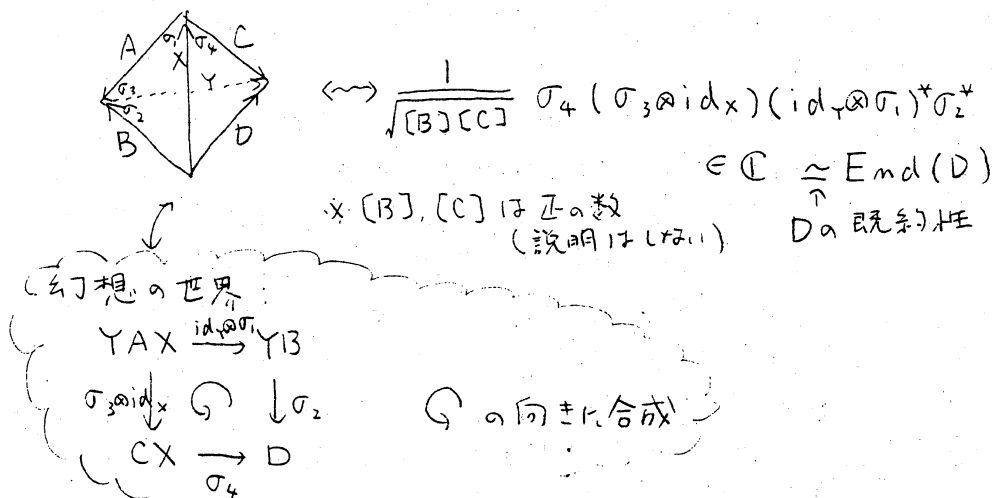 A σ₁ σ₄ C
X
σ₃ Y
σ₂
B D
⟷ 1/√([B][C]) σ₄(σ₃⊗id_X)(id_Y⊗σ₁)*σ₂*
∈ ℂ ≃ End(D)
↑
Dの既約性
※ [B], [C] は正の数
(説明はしない)
幻想の世界
YAX id_Y⊗σ₁ → YB
σ₃⊗id_X ↓ ↓ σ₂
の向きに合成
CX → D
σ₄